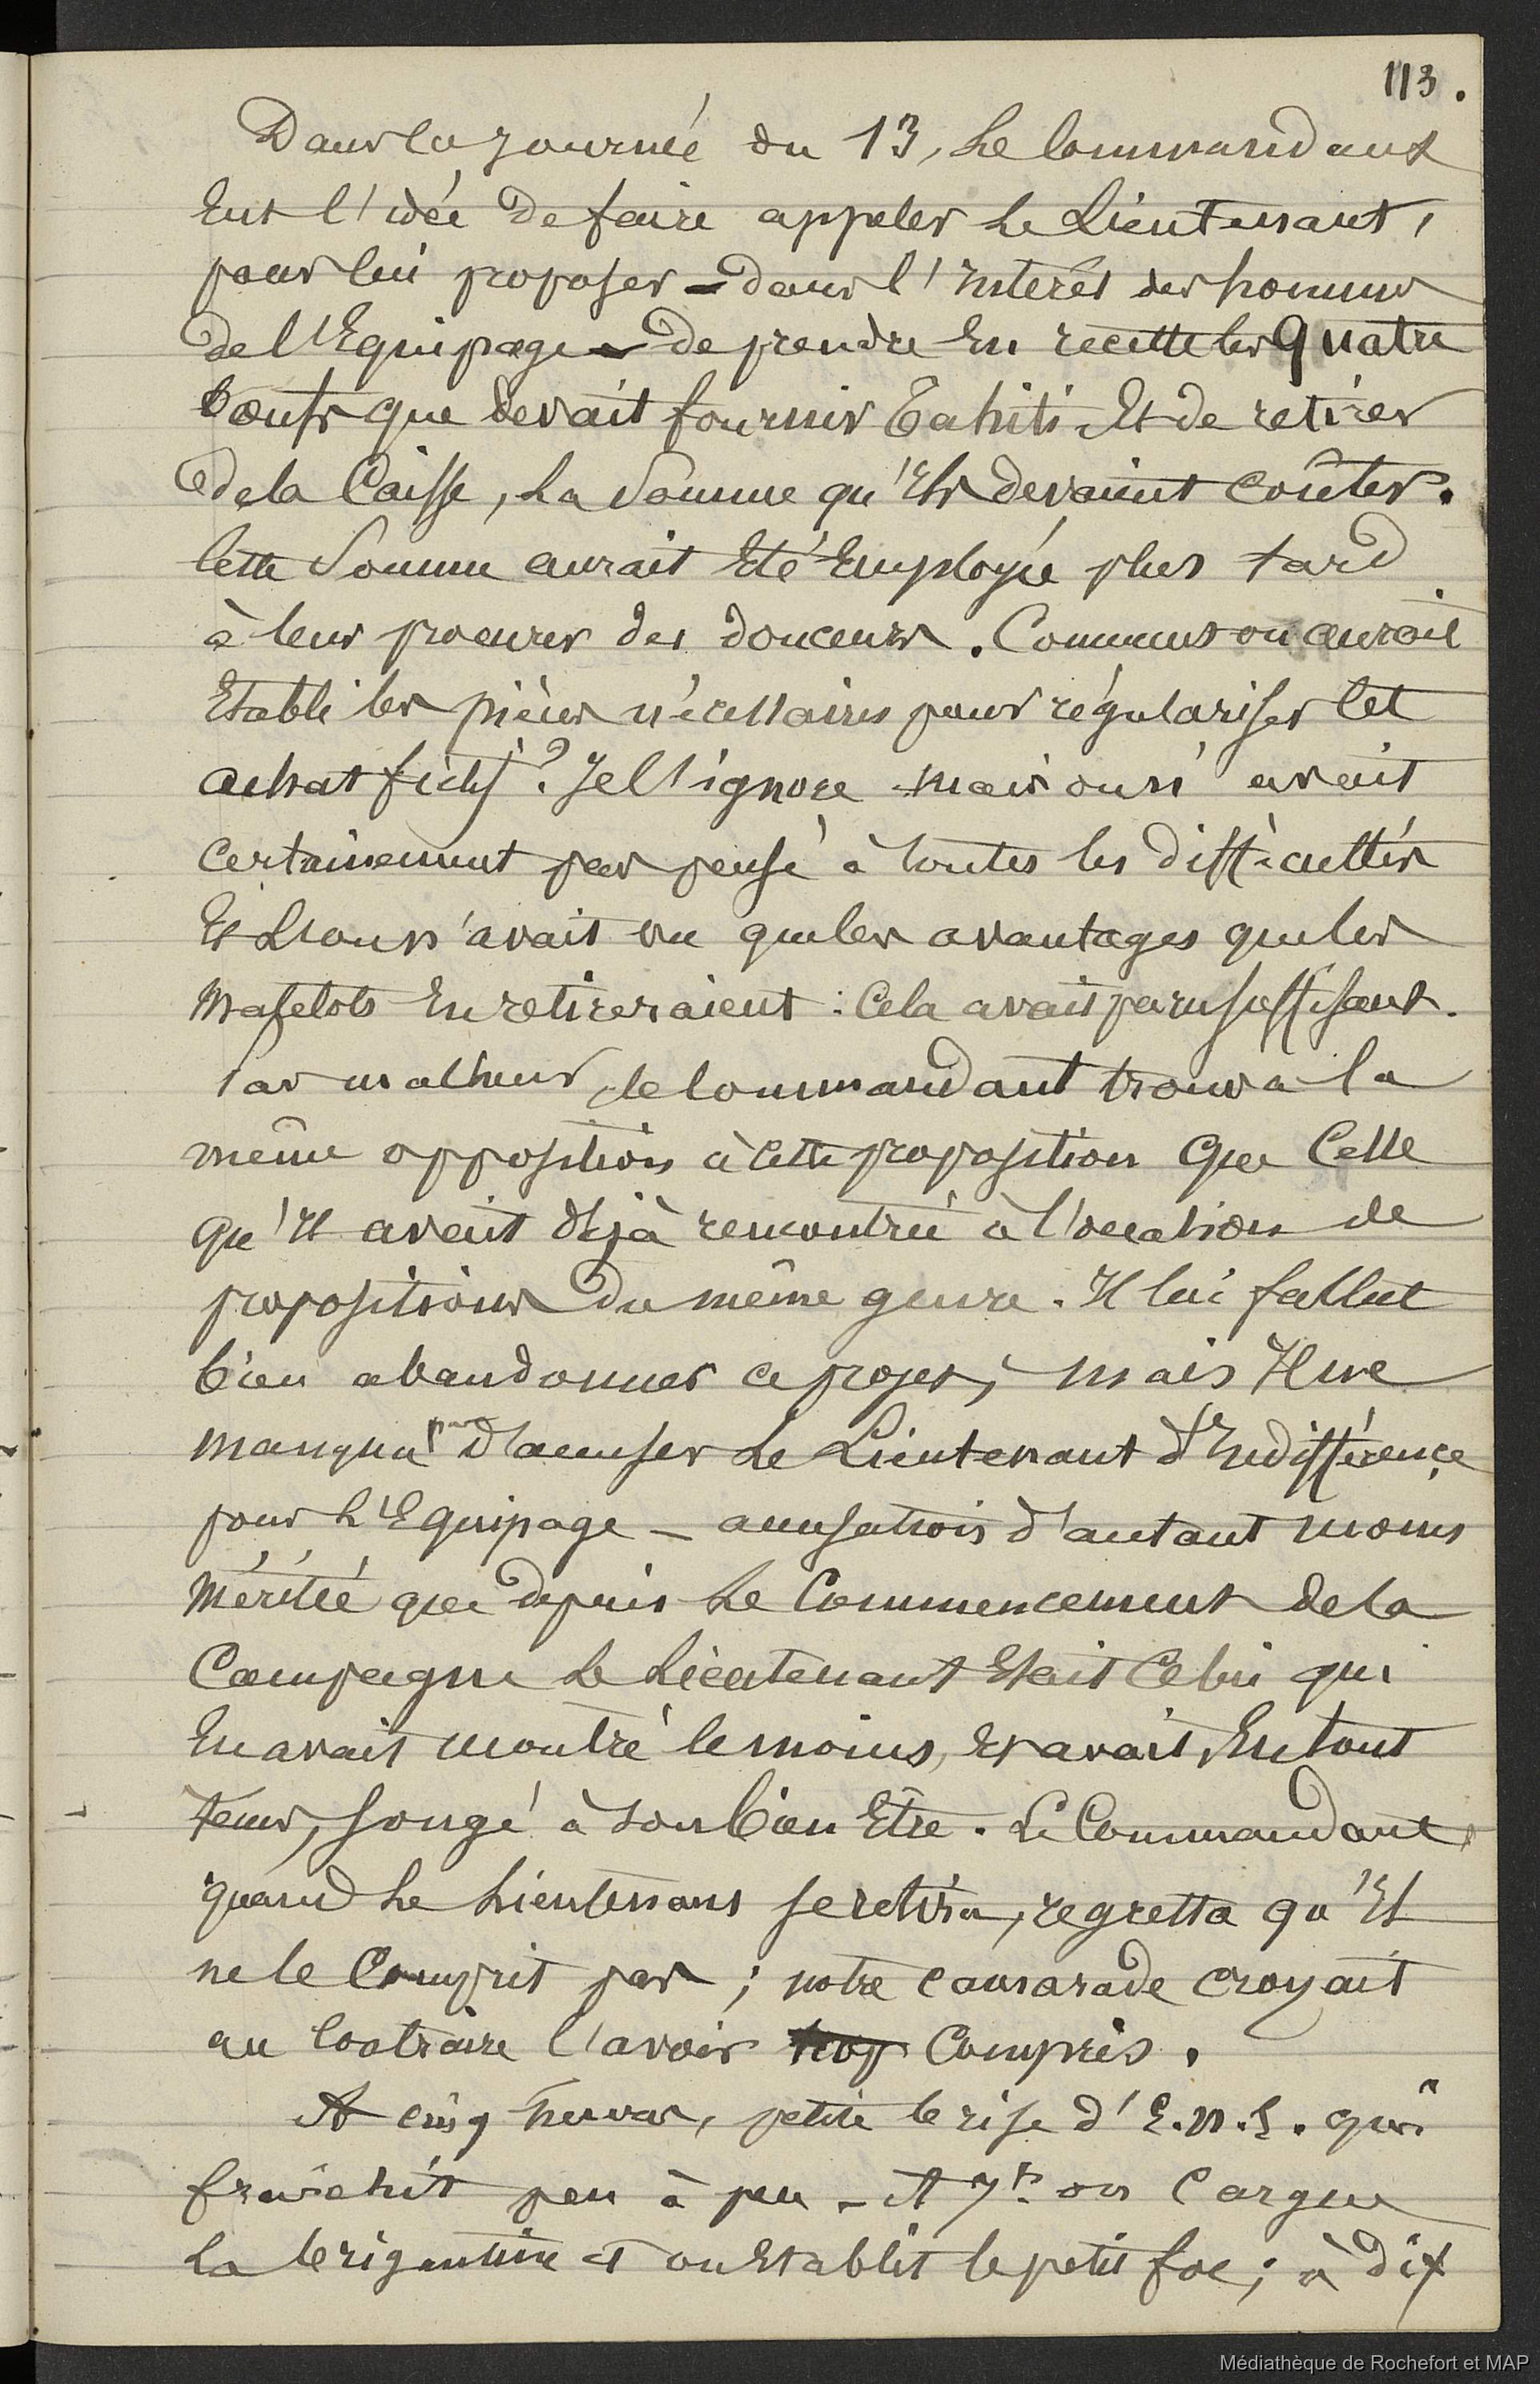 113.
Dans la journée du 13, Le Commandant
Eut l'idée De faire appeler Le Lieutenant,
pour lui proposer - dans l'Intérêt des hommes
de l'Equipage - De prendre En recette les Quatre
bœufs que devait fournir Tahiti Et de retirer
de la Caisse, La Somme qu'Ils devaient coûter.
Cette Somme aurait Eté Employée plus tard
à leur procurer des douceurs. Comment on aurait
Etabli les pièces nécessaires pour régulariser Cet
achat fictif ? Je l'ignore mais on n'avait
Certainement pas pensé à toutes les difficultés
Et L'on n'avait vu que les avantages que les
Matelots En retireraient : Cela avait paru suffisant.
Par malheur, le Commandant trouva la
même opposition à Cette proposition que Celle
qu'Il avait déjà rencontrée à l'occasion de
propositions du même genre. Il lui fallut
bien abandonner ce projet, mais Il ne
manqua pas d'accuser Le Lieutenant d'Indifférence
pour L'Equipage - accusation d'autant moins
Méritée que depuis Le Commencement de la
Campagne Le Lieutenant Etait Celui qui
En avait montré le moins, Et avait, En tout
tems, songé à son bien Etre. Le Commandant,
quand Le Lieutenant se retira, regretta qu'Il
ne le Comprit pas ; notre camarade croyait
au Contraire l'avoir trop Compris.
A cinq heures, petite brise d'E.N.E. qui
fraîchit peu à peu - A 7h. on Cargue
La brigantine et on Etablit le petit foc ; à dix
Médiathèque de Rochefort et MAP